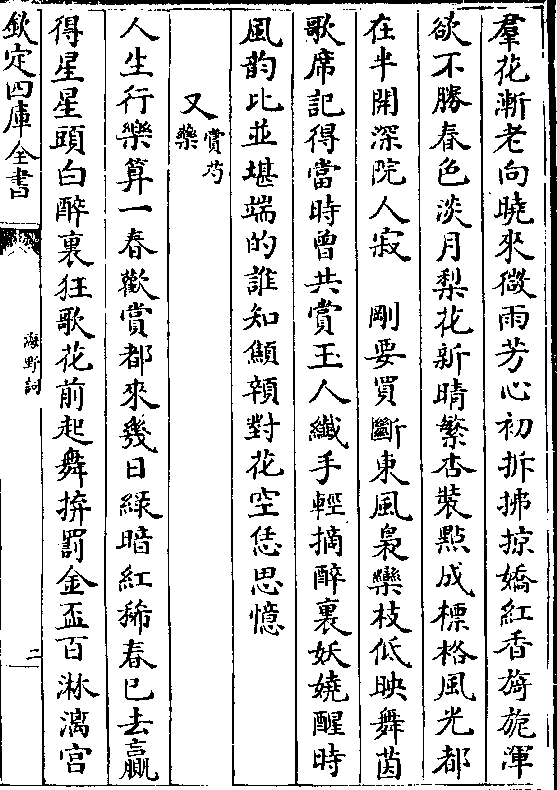 羣花漸老向曉來微雨芳心初拆拂掠嬌紅香旖旎渾
欲不勝春色淡月梨花新晴繁杏裝㸃成標格風光都
在半開深院人寂　剛要買斷東風裊欒枝低映舞茵
歌席記得當時曾共賞玉人纎手輕摘醉裏妖嬈醒時
風韵比並堪端的誰知顦顇對花空恁思憶
又賞芍藥
人生行樂算一春歡賞都來幾日緑暗紅稀春已去贏
得星星頭白醉裏狂歌花前起舞拚罰金盃百淋漓宫
欽定四庫全書
海野詞
二